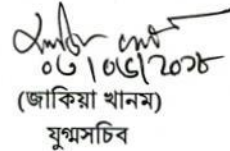 ০৬/০৬/২০১৮
(জাকিয়া খানম)
যুগ্মসচিব